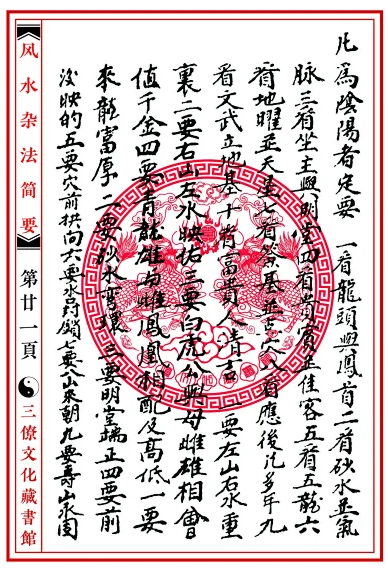 凡為陰陽者定要 一看龍頭與鳳首二看砂水並氣
脉三看坐主與明堂四看貴賓并佳客五看五龍六
看地曜並天星七看祭基並古穴八看應後凡多年九
看文武立地基十看富貴人清吉 一要左山右水重
裏二要右山左水映佑三要白虎公與母雌雄相會
值千金四要青龍雄与雌鳳凰相配及高低一要
來龍富厚二要砂水彎環三要明堂端正四要前
後映的五要穴前拱向六要水口封鎖七要八山來朝九要壽山永固
风水杂法简要
第廿一頁
三僚文化藏書館